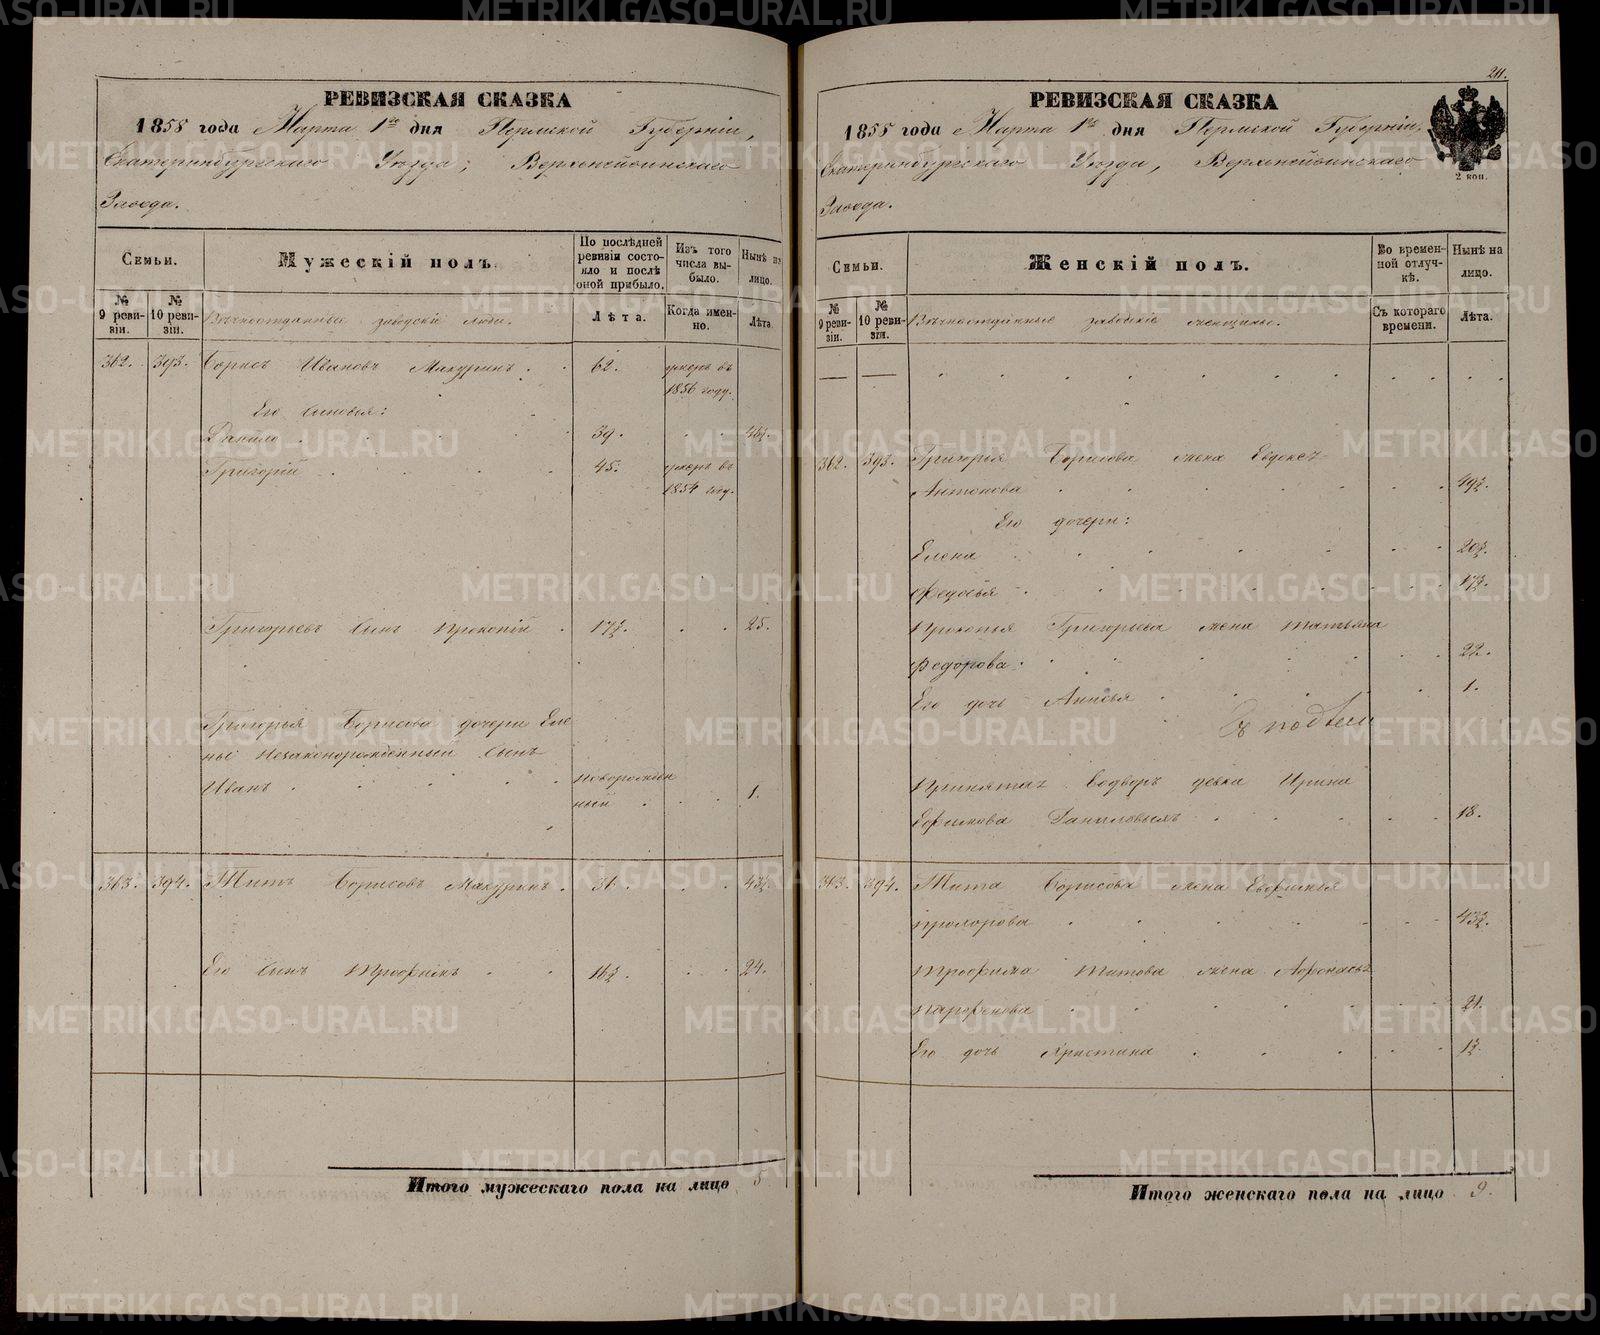 РЕВИЗСКАЯ СКАЗКА
1858 года Марта 1го дня Пермской Губерніи,
Екатеринбургскаго Уѣзда, Верхнейвинскаго
Завода.
Семьи.
Мужескій полъ.
По послѣдней ревизіи состояло и послѣ оной прибыло.
Изъ того числа выбыло.
Нынѣ на лицо.
№ 9 ревизіи.
№ 10 ревизіи.
Вѣчноотданные заводскіе люди.
Лѣта.
Когда именно.
Лѣта
362. 393. Борисъ Ивановъ Макуринъ 62. умеръ въ
1856 году.
Его сыновья:
Данило 39.
Григорій 45. умеръ въ
1854 году.
Григорьевъ сынъ Прокопій 17½. 25.
Григорья Борисова дочери Еле
ны незаконорожденный сынъ
Иванъ новорожден
ный 1.
363. 394. Титъ Борисовъ Макуринъ 31. 43½.
Его сынъ Трофимъ 16½. 24.
Итого мужескаго пола на лицо 5
211.
РЕВИЗСКАЯ СКАЗКА
1858 года Марта 1го дня Пермской Губерніи,
Екатеринбургскаго Уѣзда, Верхнейвинскаго
Завода.
2 коп.
Семьи.
Женскій полъ.
Во временной отлучкѣ.
Нынѣ на лицо.
№ 9 ревизіи.
№ 10 ревизіи.
Вѣчноотданные заводскіе женщины.
Съ котораго времени.
Лѣта.
362. 393. Григорья Борисова жена Евдокея
Антонова 49½.
Его дочери:
Елена 20½.
Федосья 17½.
Прокопья Григорьева жена Татьяна
Федорова 22.
Его дочь Анисья 1.
Принятая водворъ девка Ирина
Ефимова Даниловыхъ 18.
363. 394. Тита Борисова жена Евфимья
Прохорова 43½.
Трофима Титова жена Афонасья
Парфенова 21.
Его дочь Христина 1½.
Итого женскаго пола на лицо 9.
METRIKI.GASO-URAL.RU